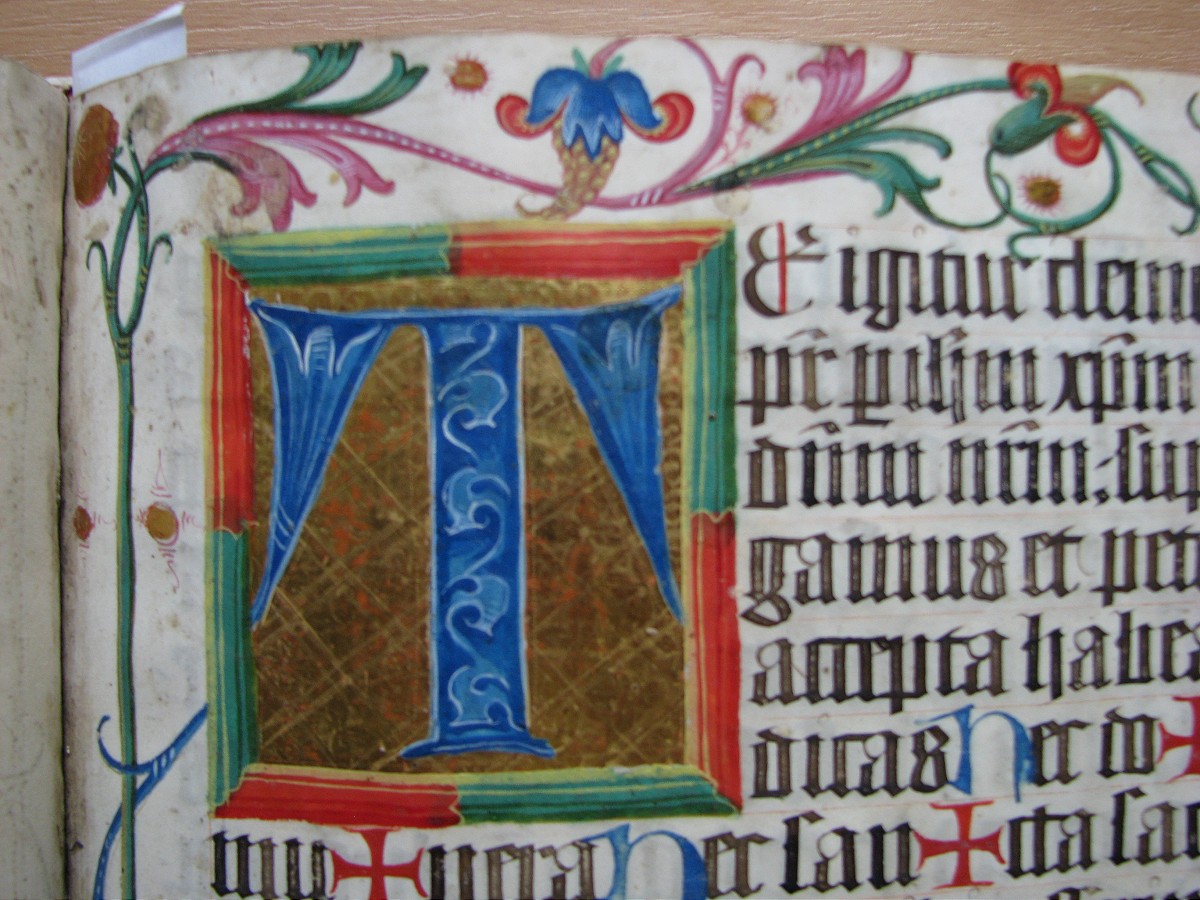 TE igitur clem
pr̄ ꝑ ihm̄ xp̄m
dn̄m nr̄m: sup
gamus et pet
accepta habea
dicas hec do✠
mu✠nera hec san✠cta sac